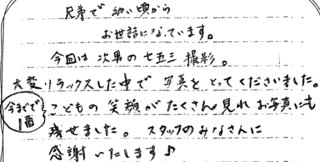 兄弟で幼い頃から
お世話になっています。
今回は次男の七五三撮影。
大変リラックスした中で写真をとってくださいました。
今までで
1番
こどもの笑顔がたくさん見れお写真にも
残せました。スタッフのみなさんに
感謝いたします♪